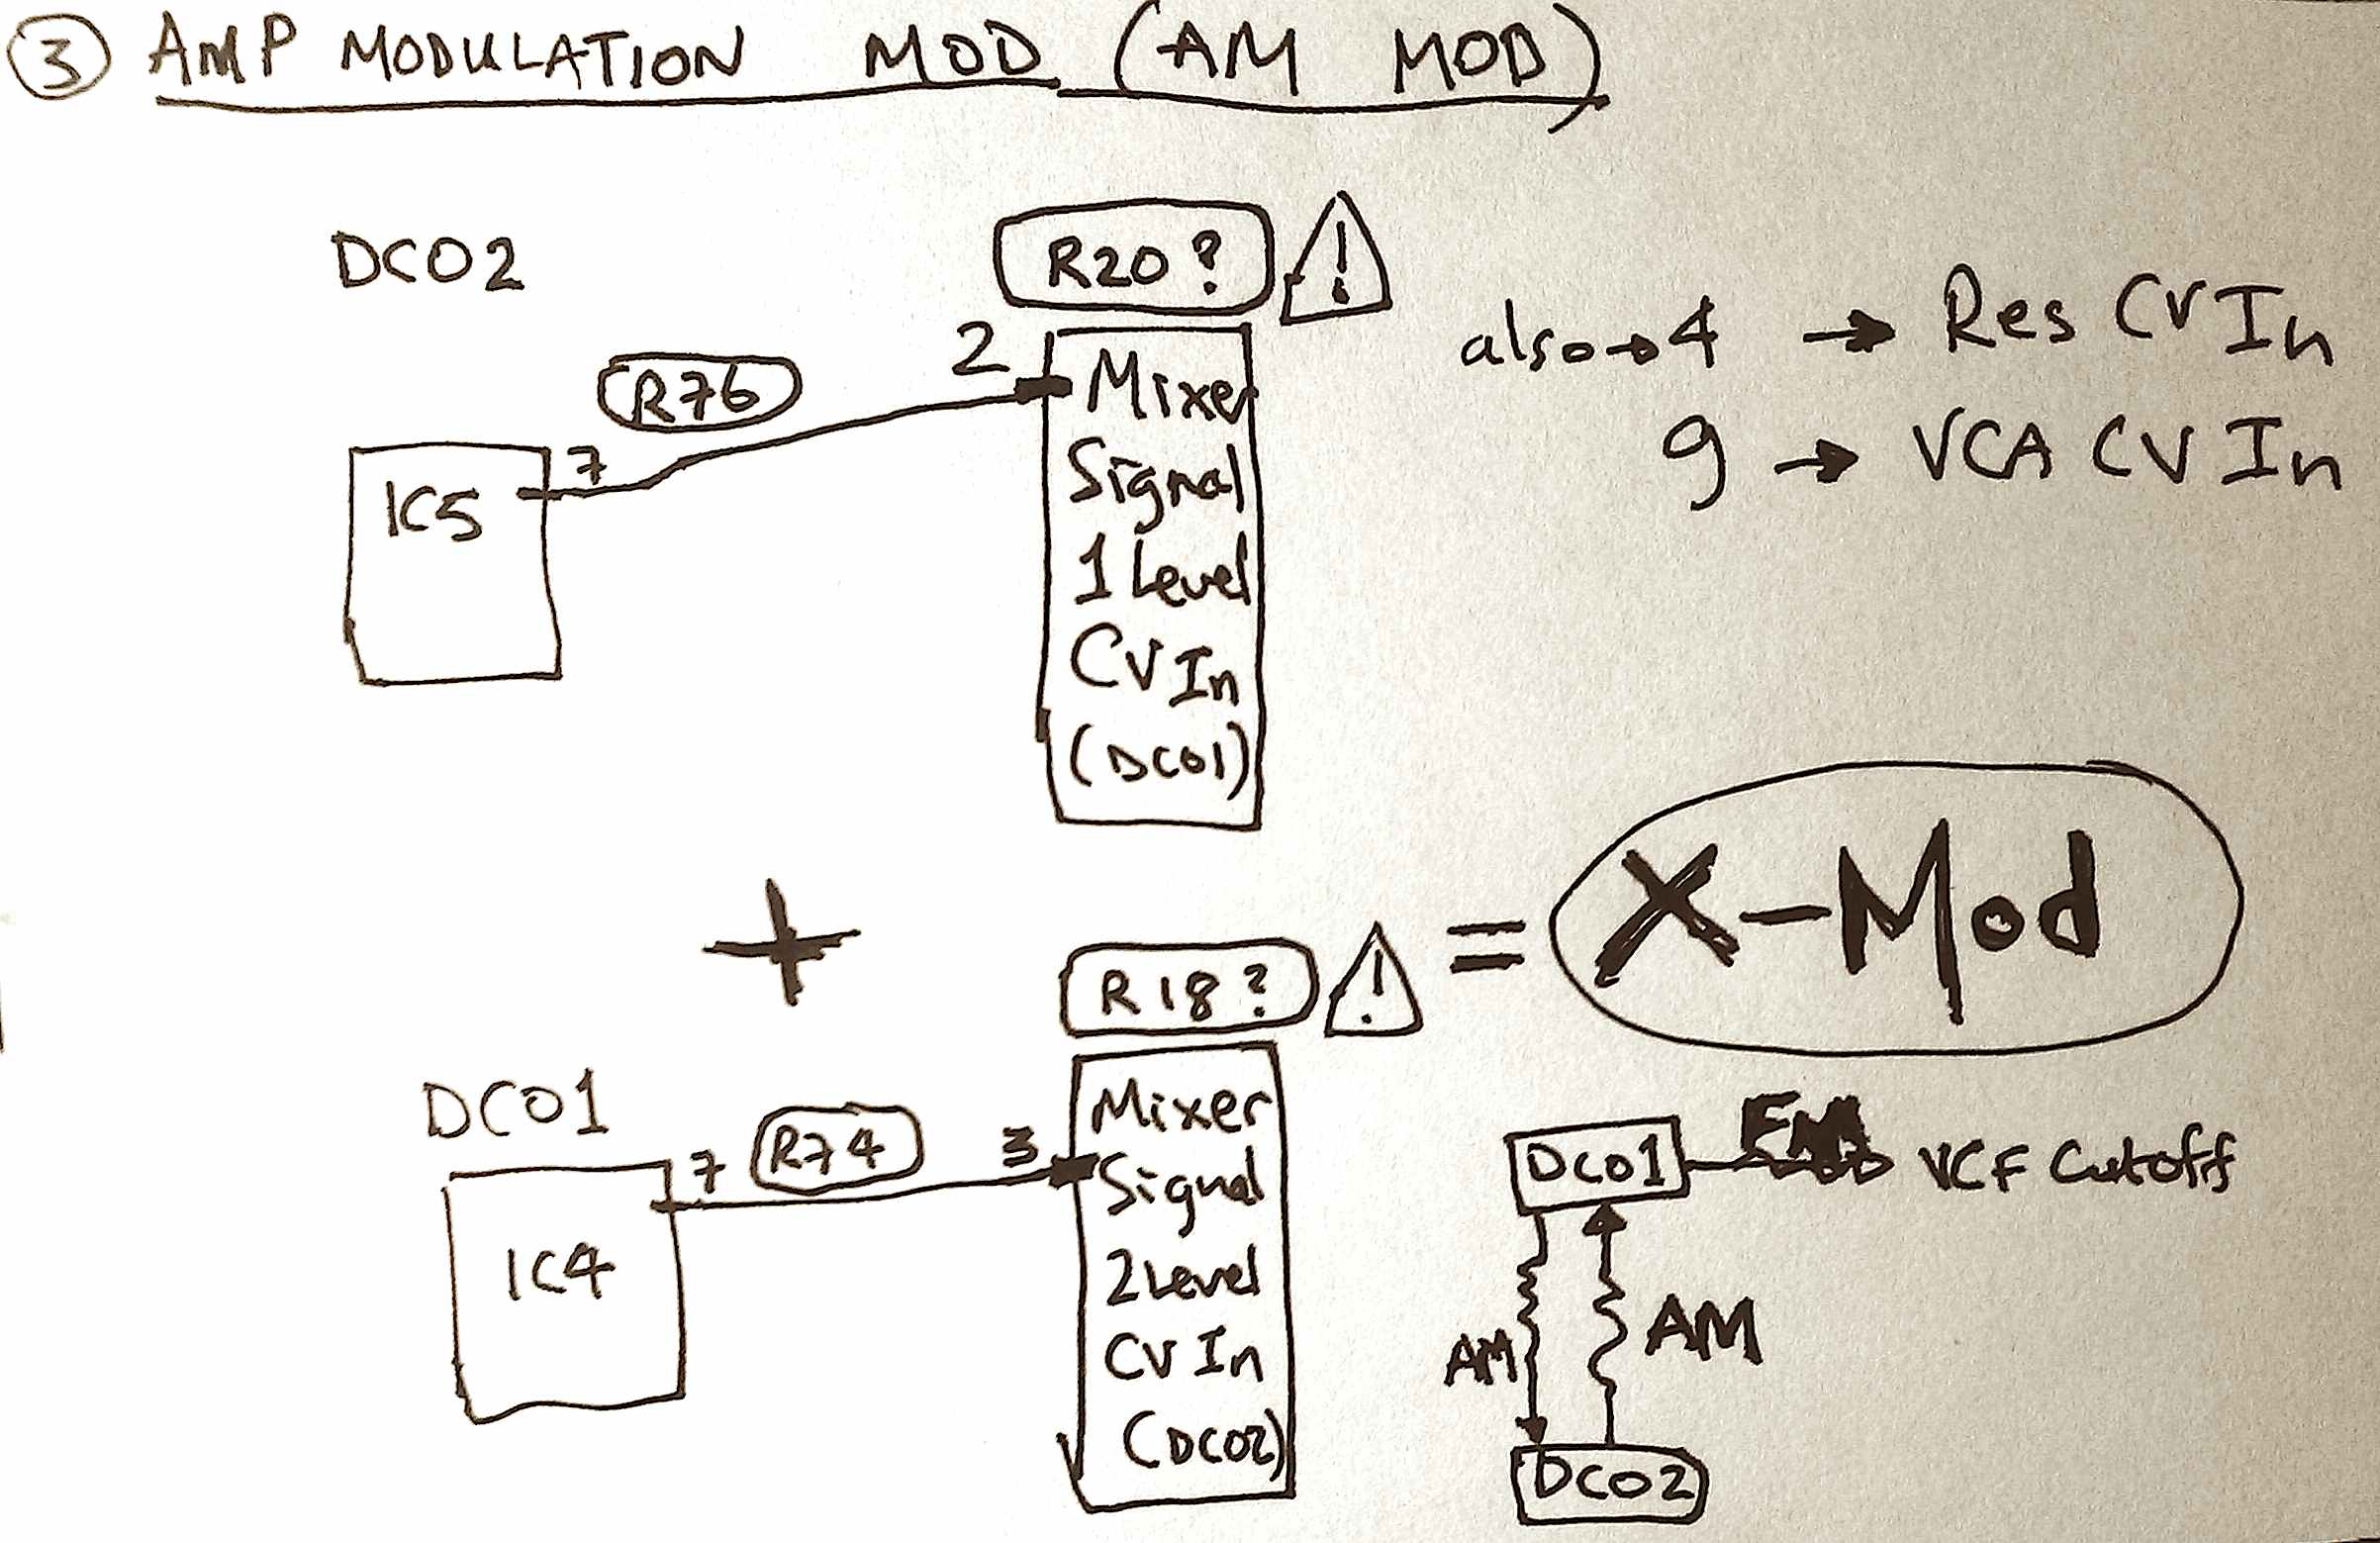 3 AMP MODULATION MOD (AM MOD)
DCO2
R20?
!
also→4 → Res CV In
9 → VCA CV In
R76
2
7
IC5
Mixer
Signal
1 Level
CV In
(DCO1)
+
= X-Mod
R18?
!
DCO1
R74
7
3
IC4
Mixer
Signal
2 Level
CV In
(DCO2)
DCO1 FM → VCF Cutoff
AM
AM
DCO2